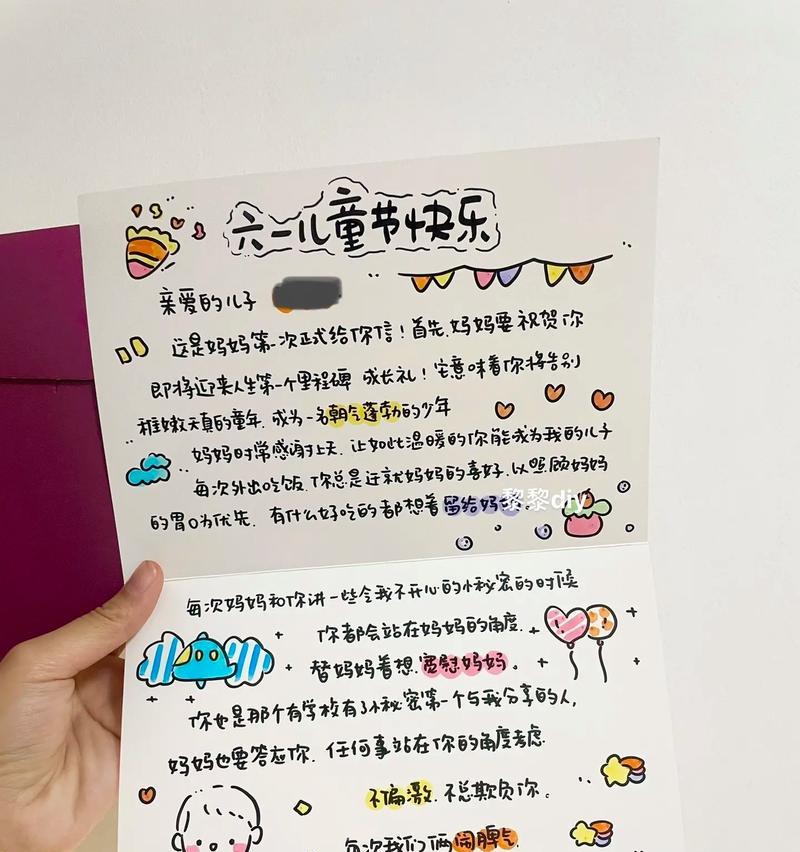 六一儿童节快乐
亲爱的儿子
这是妈妈第一次正式给你信！首先,妈妈要祝贺你
即将迎来人生第一个里程碑 成长礼！它意味着你将告别
稚嫩天真的童年,成为一名朝气蓬勃的少年
妈妈时常感谢上天,让如此温暖的你能成为我的儿子
每次外出吃饭,你总是迁就妈妈的喜好,以照顾妈妈
的胃口为优先,有什么好吃的都想着留给妈妈。
黎黎diy
每次妈妈和你讲一些令我不开心的小秘密的时候
你都会站在妈妈的角度,
替妈妈着想,宽慰妈妈。
你也是那个有学校有了小秘密第一个与我分享的人,
妈妈也要答应你,任何事站在你的角度考虑.
不偏激,不总欺负你。
每次我们俩闹脾气,